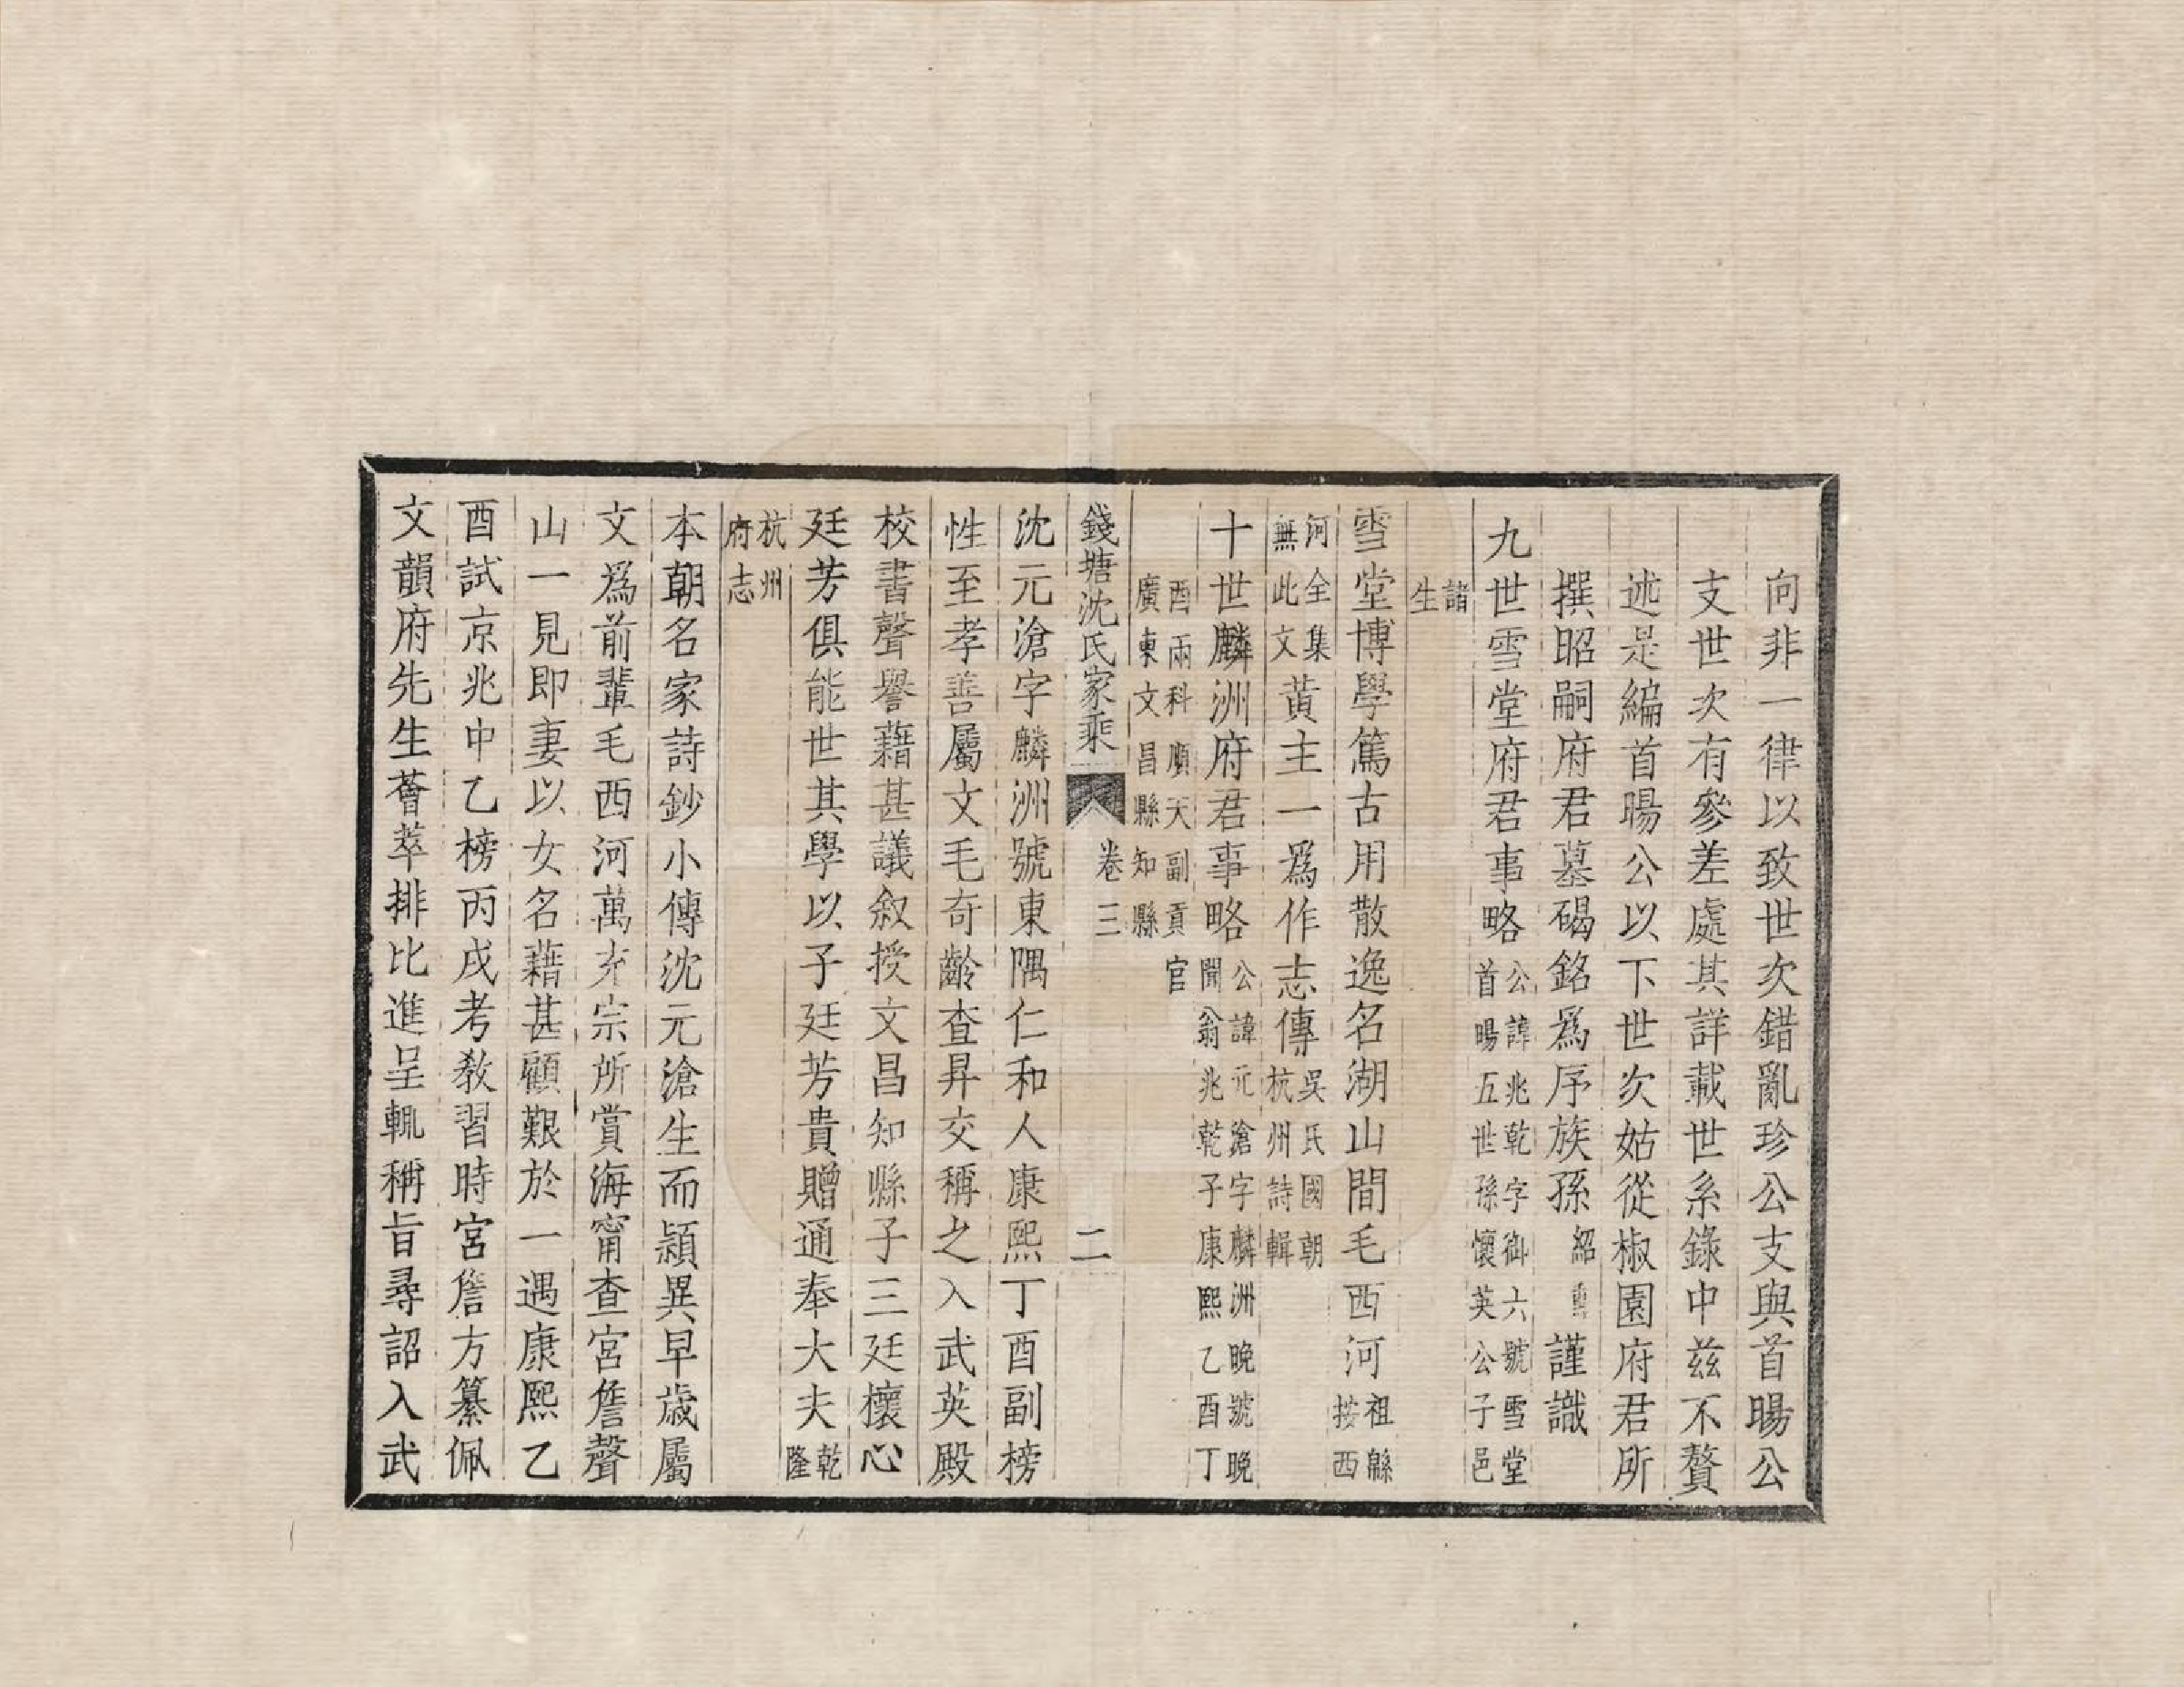 向非一律以致世次錯亂珍公支與首暘公
支世次有參差處其詳載世系錄中兹不贅
述是編首暘公以下世次姑從椒園府君所
撰昭嗣府君墓碣銘爲序族孫紹勳謹識
九世雪堂府君事略公諱兆乾字御六號雪堂首暘五世孫懷英公子邑
諸生
雪堂博學篤古用散逸名湖山間毛西河祖緜按西
河全集無此文黃主一爲作志傳吳氏國朝杭州詩輯
十世麟洲府君事略公諱元滄字麟洲晚號晚聞翁兆乾子康熙乙酉丁
酉兩科順天副貢官廣東文昌縣知縣
錢塘沈氏家乘 卷三 二
沈元滄字麟洲號東隅仁和人康熙丁酉副榜
性至孝善屬文毛奇齡查昇交稱之入武英殿
校書聲譽藉甚議叙授文昌知縣子三廷櫰心
廷芳俱能世其學以子廷芳貴贈通奉大夫乾隆
杭州府志
本朝名家詩鈔小傳沈元滄生而頴異早歲屬
文爲前輩毛西河萬充宗所賞海甯查宮詹聲
山一見即妻以女名藉甚顧艱於一遇康熙乙
酉試京兆中乙榜丙戌考教習時宮詹方纂佩
文韻府先生薈萃排比進呈輒稱旨尋詔入武